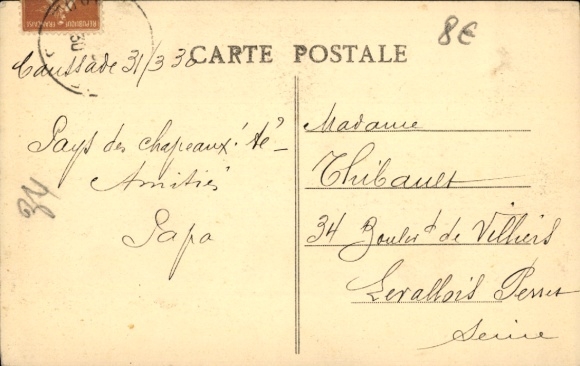 REPUBLIQUE FRANÇAISE
30
8€
CARTE POSTALE
Caussade 31/3 30
Pays des chapeaux!
Amitiés
Papa
34
Madame
Thibault
34 Boulev^d de Villiers
Levallois Perret
Seine